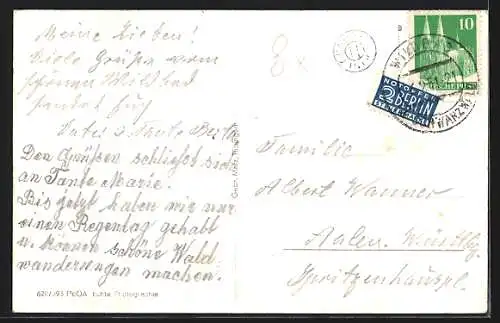 Meine Lieben!
Viele Grüße vom
schönen Wildbad
sendet Euch
Vater u. Tante Berta
Den Grüßen schließt sich
an Tante Marie.
Bis jetzt haben wir nur
einen Regentag gehabt
u. können schöne Wald
wanderungen machen.
echte Photographie
Gebr. Metz, Tübingen
10
NOTOPFER
2 BERLIN
STEUERMARKE
WILDBAD
SCHWARZWALD
Familie
Albert Wanner
Aalen. Württbg.